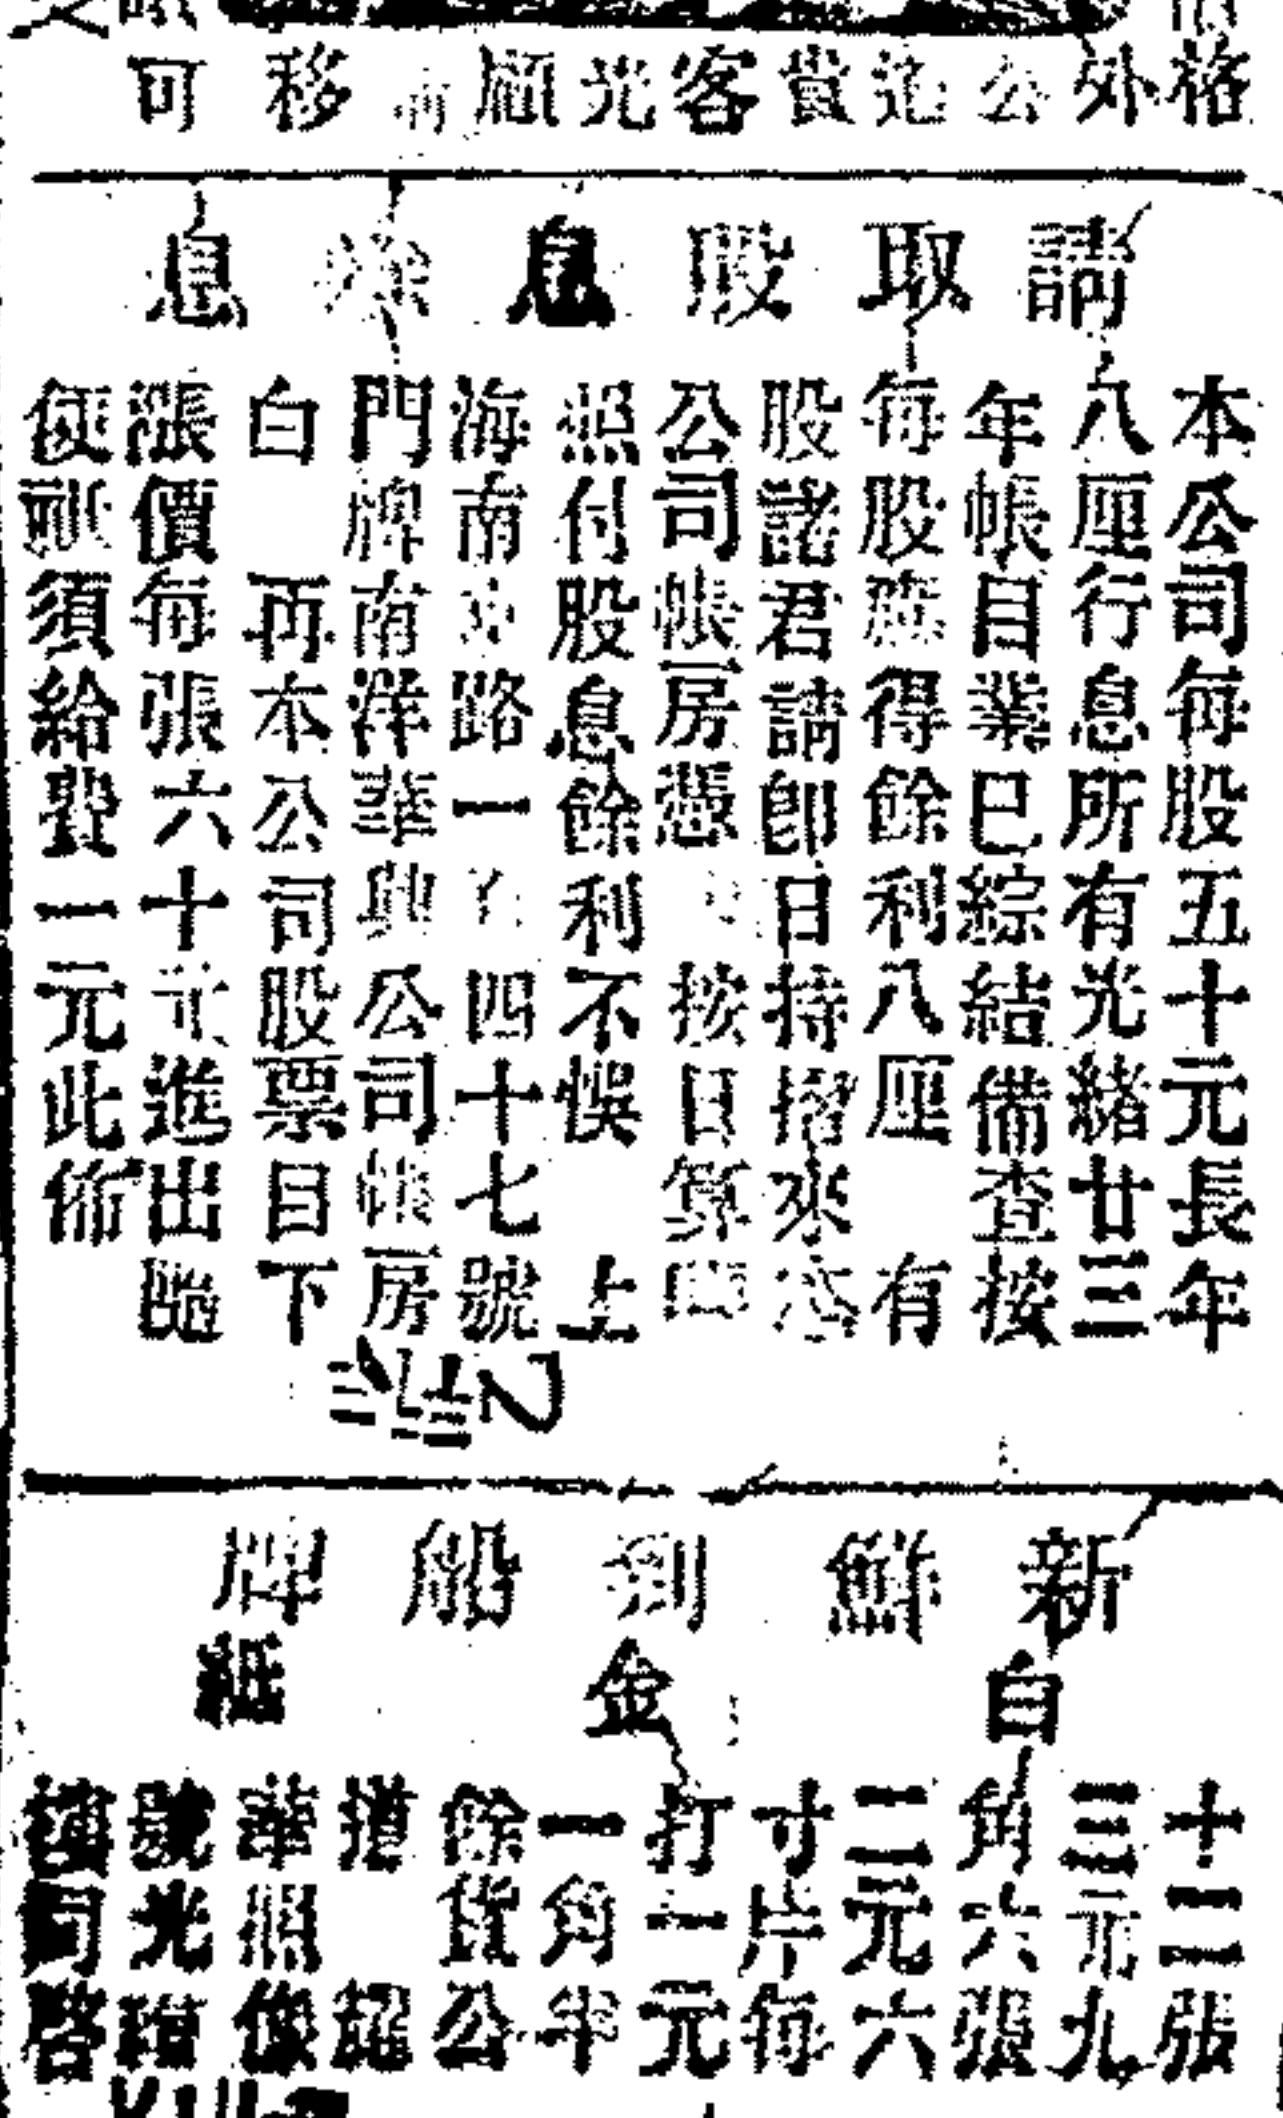 格外公道貴客光顧 移可
請取股息 息
本公司每股五十元長年
八厘行息所有光緒廿三
年帳目業已綜結備查按
每股應得餘利八厘 有
股諸君請即日持摺來
公司帳房憑 按日算
照付股息餘利不悞 上
海南 路一 四十七號
門牌南洋華興公司帳房
白 再本公司股票目下
漲價每張六十元進出
便 須給費一元此佈
新鮮到船牌
白金紙
十二張
三元九
角六張
二元六
寸片每
打一元
一角半
餘貨公
道 耀
華照像
號光
樓同啓